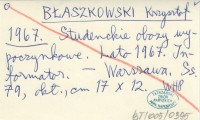 BŁASZKOWSKI Krzysztof
1967. Studenckie obozy wy-
poczynkowe. Lato 1967. In-
formator. — Warszawa. Ss.
79, okt., am 17 x 12.